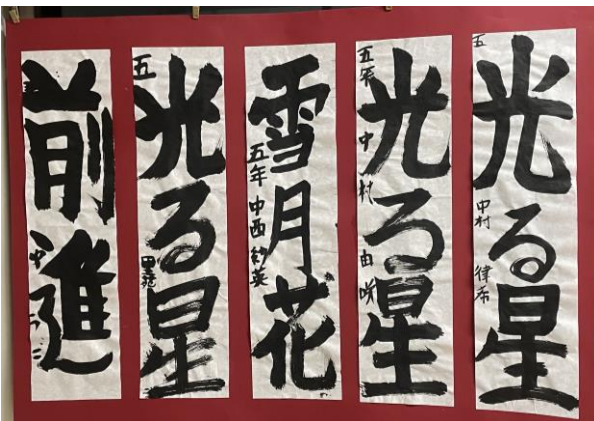 光る星
五
中村 律希
光る星
五年 中村 由咲
雪月花
五年 中西 紗英
光る星
五
前進
中